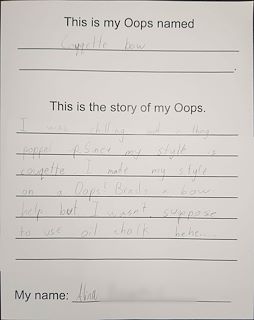 This is my Oops named
Coqette bow
This is the story of my Oops.
I was chilling and a thing
popped Since my style is
coqette I make my style
on a Oops! Beads a bow
help but I wasn't suppose
to use oil chalk hehe...
My name: Alina